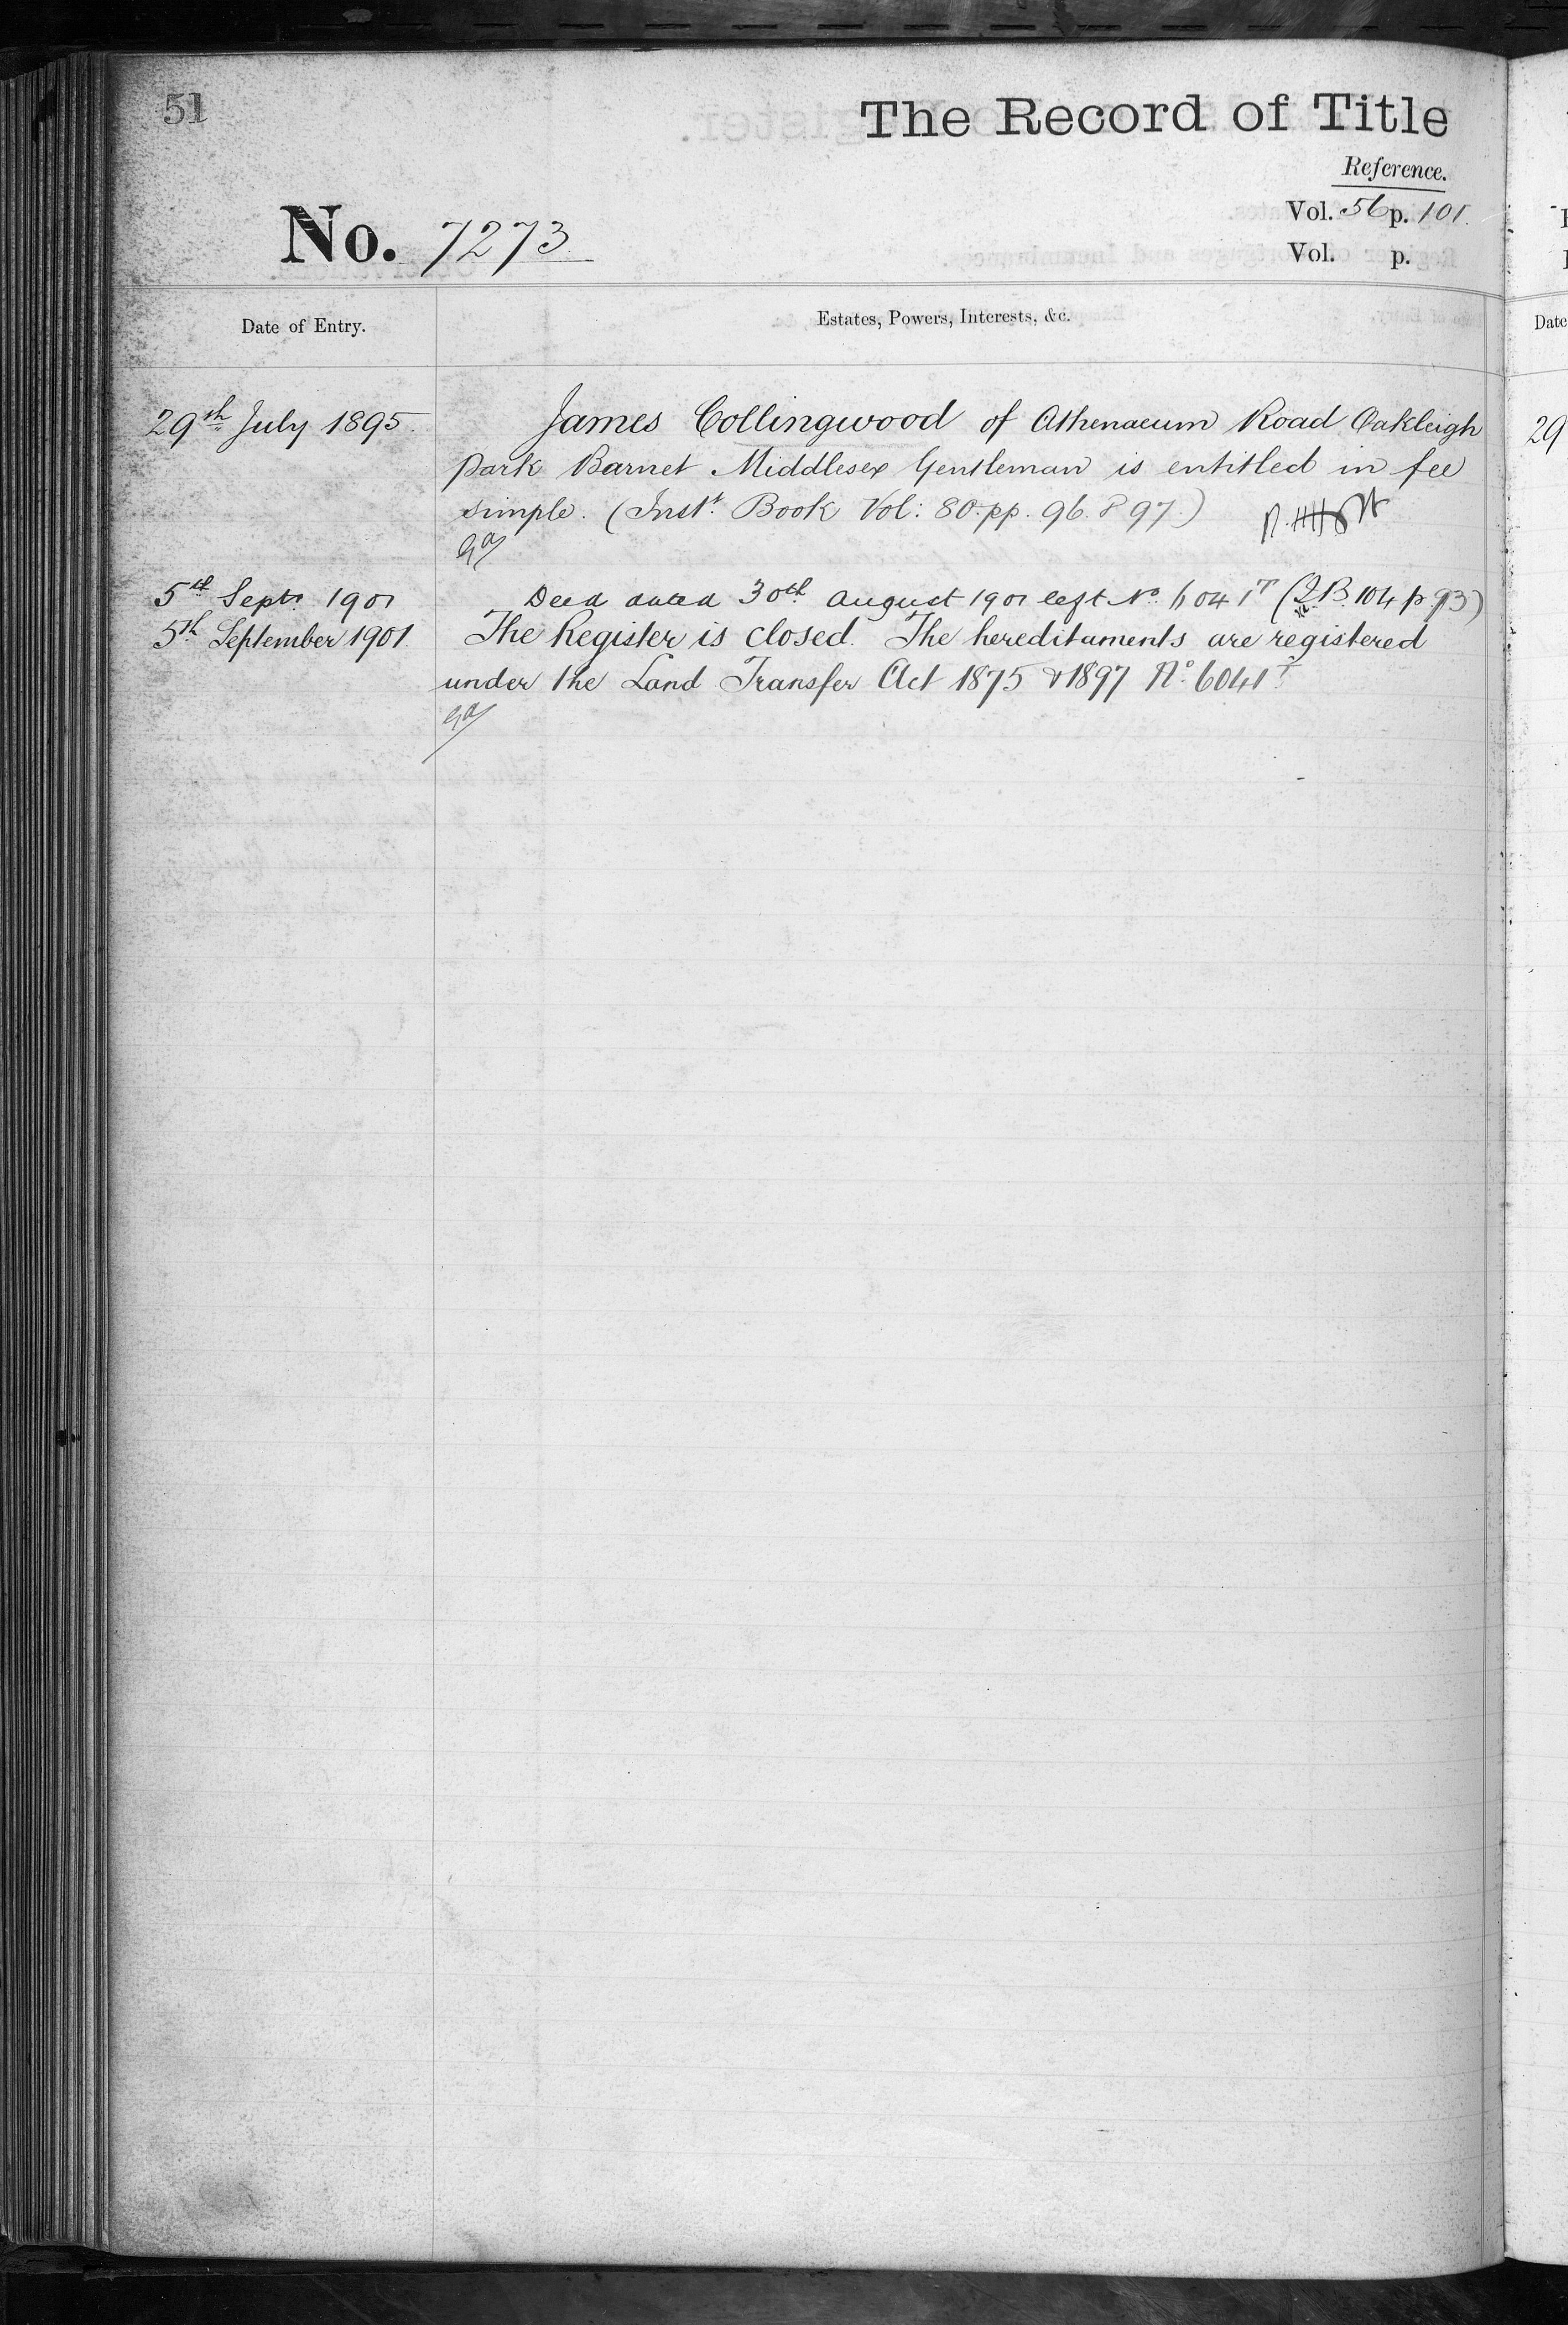 51
The Record of Title
Reference.
Vol. 56 p. 101.
Vol. p.
No. 7273
Date of Entry.
Estates, Powers, Interests, &c.
29th July 1895.
James Collingwood of Athenaeum Road Oakleigh
Park Barnet Middlesex Gentleman is entitled in fee
simple. (Inst. Book Vol: 80. pp. 96. & 97.)
5th Sept. 1901
Deed dated 30th August 1901 left No. 6041T (I.B. 104 p. 93)
5th September 1901.
The Register is closed. The hereditaments are registered
under the Land Transfer Act 1875 & 1897 No. 6041T
Date
29